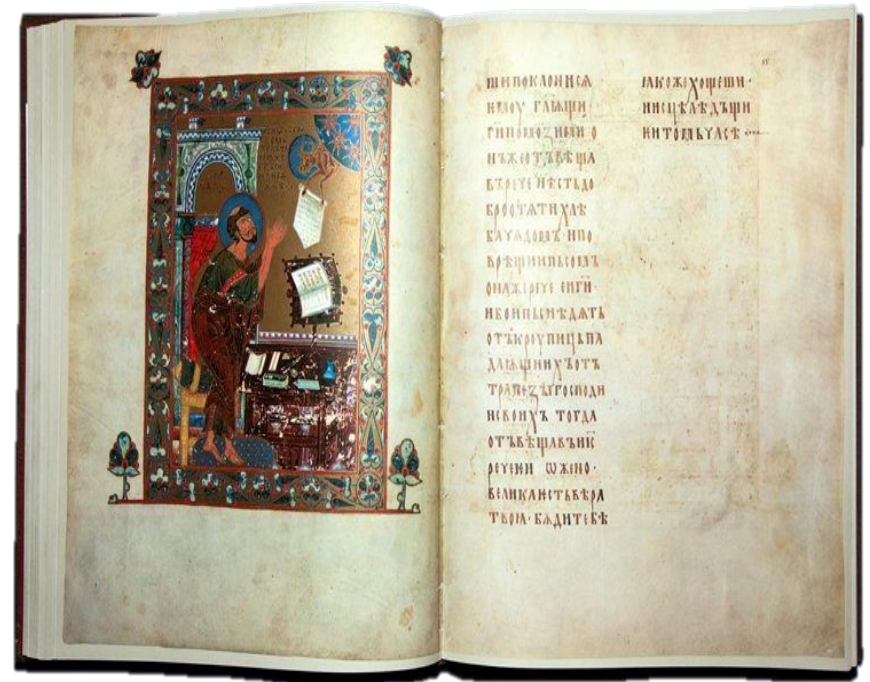 ши поклонисѧ
ѥмоу глѭщи·
г҃и помоꙁи ми о
нъ же отъвѣща
въ рече нѣсть до
бро отѧти хлѣ
ба чѧдомъ и по
врѣщи пьсомъ
она же рече еи г҃и·
ибо и пьси ѣдѧть
отъ кроупицъ па
даѭщиихъ отъ
трапеꙁꙑ господи
и своихъ тогда
отъвѣщавъ и҃с
рече ѥи ѡ жено·
велика ѥсть вѣра
твоꙗ· бѫди тебѣ
ꙗкоже хощеши·
и исцѣлѣ дъщи
ѥи томь часѣ